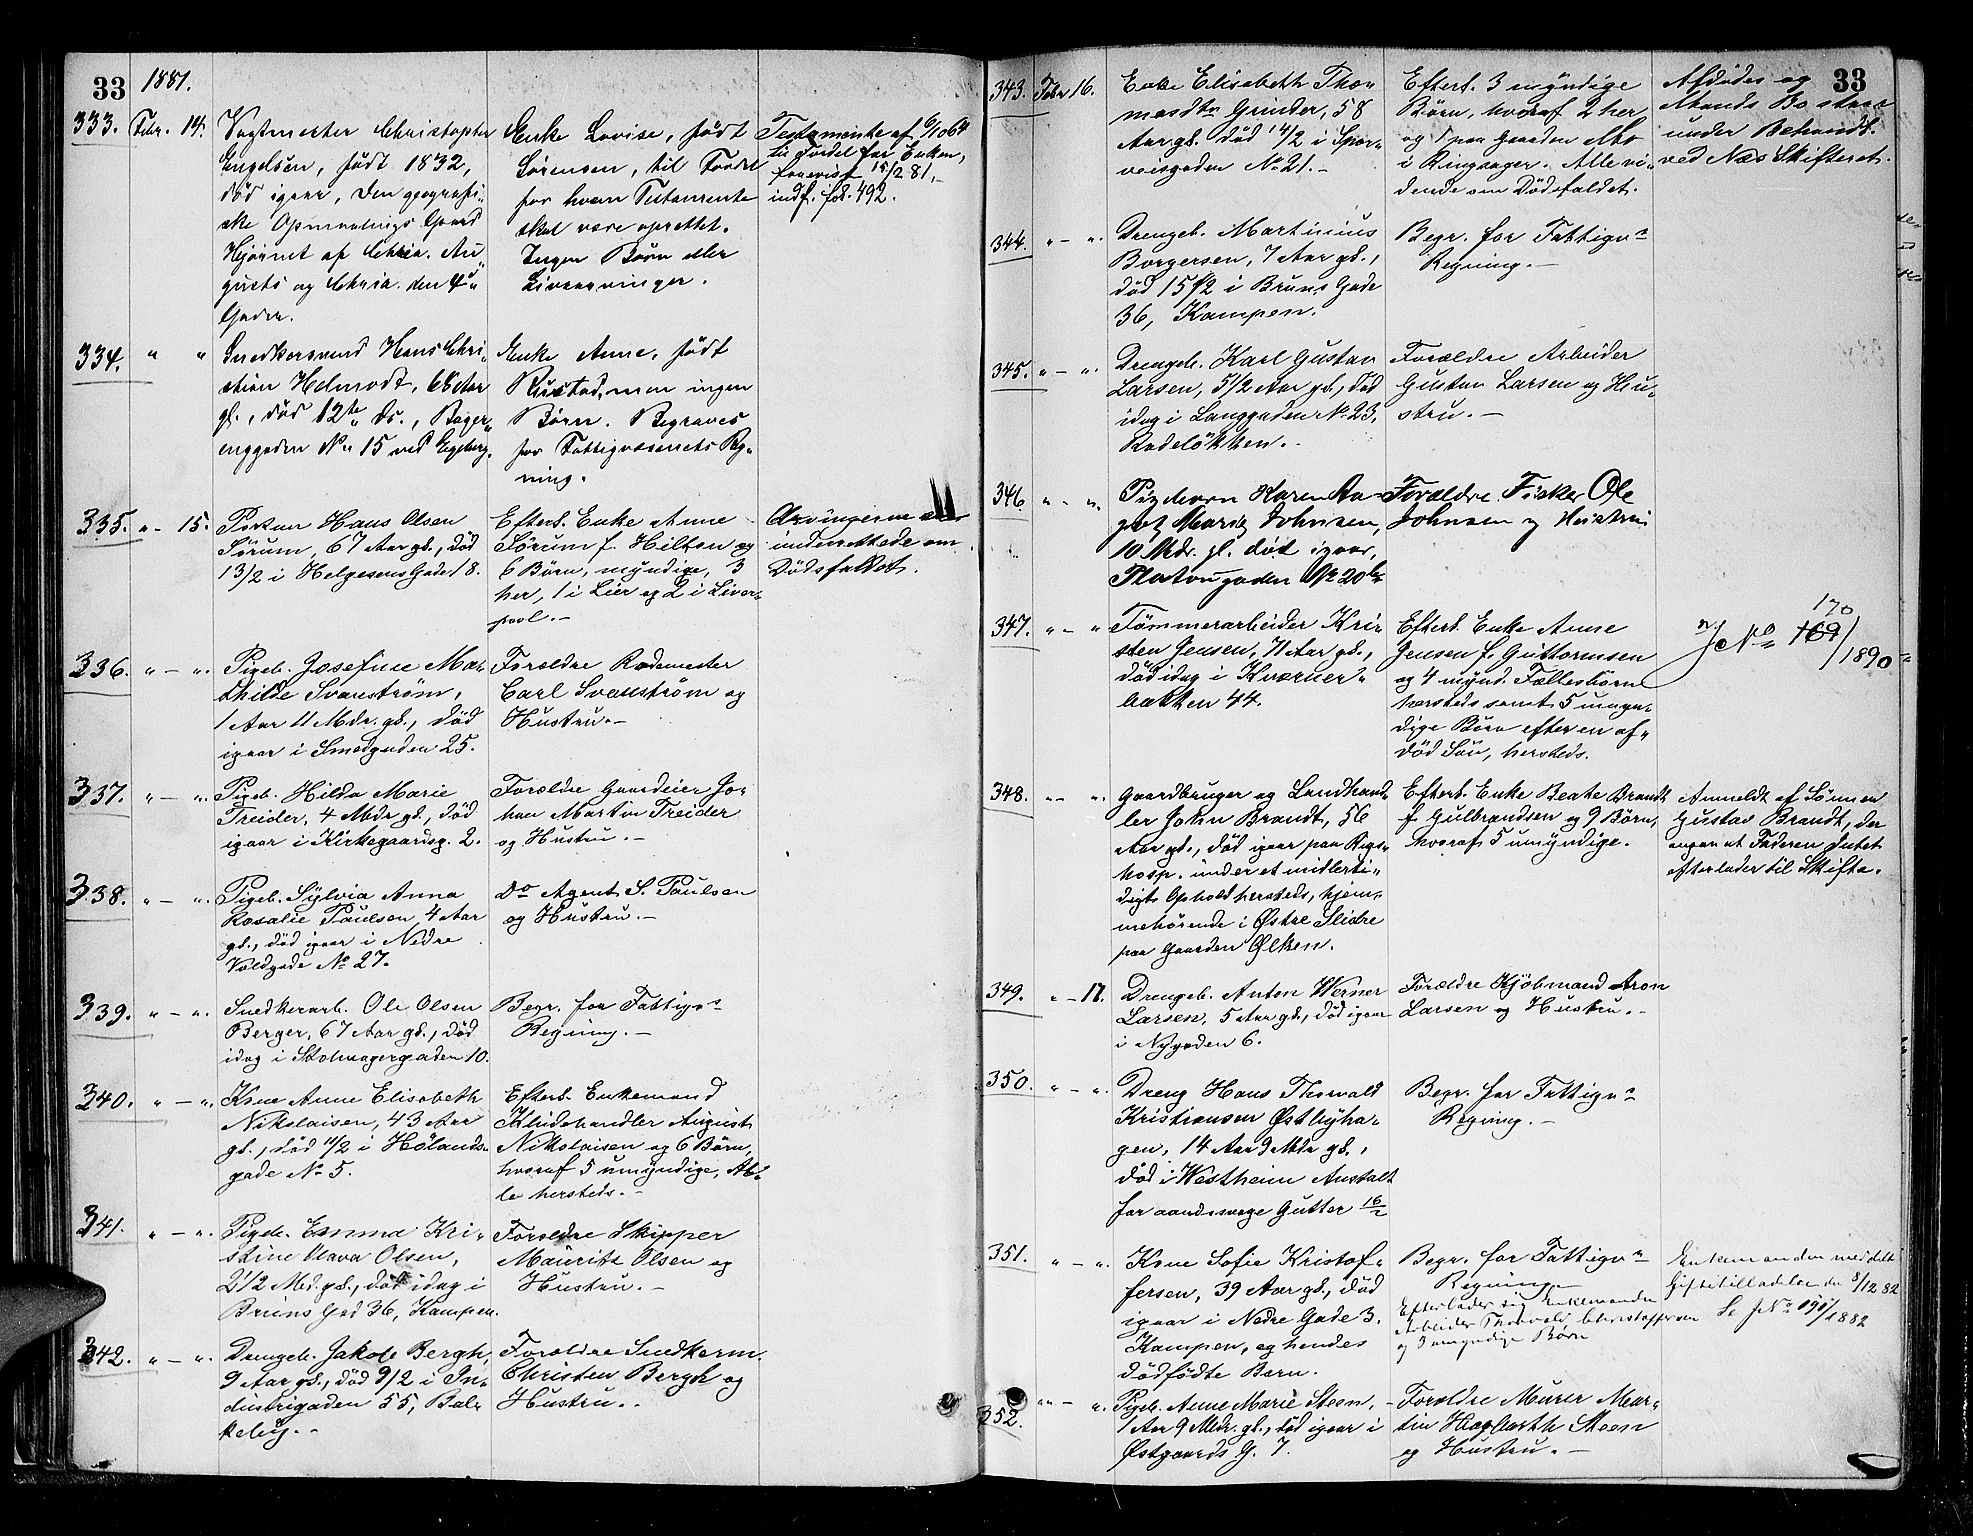 33
1881.
333. Febr. 14.
Vagtmester Christopher
Engelsen, født 1832,
død igaar, den geografi-
ske Opmaalings Gaard
Hjørnet af Chria. Au-
gusts og Chria. den 4des
Gader.
Enke Lovise, født
Sørensen, til Fordel
for hvem Testamente
skal være oprettet.
Ingen Børn eller
Livsarvinger.
Testamente af 6/10 64
til Fordel for Enken,
forevist 15/2 81,
indf. fol. 492.
334. " "
Snedkersvend Hans Chri-
stian Helmodt, 66 Aar
gl., død 12te ds., Bøger-
enggaden No 15 ved Egeberg.
Enke Anne, født
Rustad, men ingen
Børn. Begraves
for Fattigvæsenets Reg-
ning.
335. " - 15.
Portner Hans Olsen
Sørum, 67 Aar gl., død
13/2 i Helgesens Gade 18.
Efterl. Enke Anne
Sørum f. Hilton og
6 Børn, myndige, 3
her, 1 i Lier og 2 i Liver-
pool. -
Arvingerne ere
underrettede om
Dødsfaldet.
336. " - ".
Pigeb. Josefine Ma-
thilde Svanstrøm,
1 Aar 11 Mdr. gl., død
igaar i Smedgaden 25.
Forældre Rodemester
Carl Svanstrøm og
Hustru. -
337. " - ".
Pigeb. Hilda Marie
Treider, 4 Mdr gl., død
igaar i Kirkegaardsg. 2.
Forældre Gaardeier Jo-
han Martin Treider
og Hustru. -
338. " - ".
Pigeb. Sylvia Anna
Rosalie Paulsen, 4 Aar
gl., død igaar i Nedre
Voldgade No 27.
Do Agent S. Paulsen
og Hustru. -
339. " - ".
Snedkerarb. Ole Olsen
Berger, 67 Aar gl., død
idag i Stolmagergaden 10.
Begr. for Fattigv.s
Regning. -
340. " - ".
Kone Anne Elisabeth
Nikolaisen, 43 Aar
gl., død 11/2 i Hølands-
gade No 5.
Efterl. Enkemand
Klædehandler August
Nikolaisen og 6 Børn,
hvoraf 5 umyndige, Al-
le hersteds. -
341. " - ".
Pigeb. Emma Kri-
stine Olava Olsen,
2 1/2 Md. gl., død idag i
Bruns Gad 36, Kampen.
Forældre Skipper
Maurits Olsen og
Hustru. -
342. " - ".
Drengeb. Jakob Bergh,
9 Aar gl., død 9/2 i In-
dustrigaden 55, Bal-
keby. -
Forældre Snedkerm.
Christen Bergh og
Hustru. -
33
343. Febr 16.
Enke Elisabeth Tho-
masdtr Grinder, 58
Aar gl. død 14/2 i Spor-
veisgaden No 21. -
Efterl. 3 myndige
Børn, hvoraf 2 her
og 1 paa Gaarden Mo
i Ringsager. Alle vi-
dende om Dødsfaldet.
Afdødes og
Mands Bo staar
under Behandl.
ved Næs Skifteret.
344. " - ".
Drengeb. Martinius
Borgersen, 7 Aar gl.,
død 15/2 i Bruns Gade
36, Kampen.
Begr. for Fattigv.s
Regning. -
345. " - ".
Drengeb. Karl Gustav
Larsen, 5 1/2 Aar gl., død
idag i Langgaden No 23,
Rodeløkken.
Forældre Arbeider
Gustav Larsen og Hu-
stru. -
346 " - ".
Pigebarn Karen Aa-
got Marie Johnsen,
10 Mdr. gl. død igaar,
Platougaden No 20 b.
Forældre Fisker Ole
Johnsen og Hustru
347. " - "
Tømmerarbeider Kri-
sten Jensen, 71 Aar gl.,
død idag i Kværner-
bakken 44.
Efterl. Enke Anne
Jensen f. Guttormsen
og 4 mynd. Fællesbørn
hersteds samt 5 umyn-
dige Børn efter en af-
død Søn, hersteds.
170
JNo 169/1890
348. " - ".
Gaardbruger og Landhand-
ler John Brandt, 56
Aar gl., død igaar paa Rigs-
hosp. under et midlerti-
digt Ophold hersteds, hjem-
mehørende i Østre Slidre
paa Gaarden Ølken.
Efterl. Enke Beate Brandt
f. Gulbrandsen og 9 Børn,
hvoraf 5 umyndige.
Anmeldt af Sønnen
Gustav Brandt, der
angav at Faderen Intet
efterlader til Skifte.
349. " - 17.
Drengeb. Anton Werner
Larsen, 5 Aar gl., død igaar
i Nygaden 6.
Forældre Kjøbmand Aron
Larsen og Hustru. -
350. " - ".
Dreng Hans Thorvald
Kristiansen Østbyha-
gen, 14 Aar 9 Mdr gl.,
død i Westheim Anstalt
for aandssvage Gutter 16/2
Begr. for Fattigv.s
Regning. -
351. " - ".
Kone Sofie Kristof-
fersen, 39 Aar gl., død
igaar i Nedre Gade 3.
Kampen, og hendes
dødfødte Barn.
Begr. for Fattigv.s
Regning. -
Efterlader sig Enkemanden
Arbeider Thorvald Christoffersen
og 3 umyndige Børn
Enkemanden meddelt
Giftetilladelse den 8/12 82
Se JNo 191/1882
352. " - ".
Pigeb. Anne Marie Steen,
1 Aar 9 Mdr. gl., død igaar i
Østgaards G. 7.
Forældre Murer Mar-
tin Hagbarth Steen
og Hustru. -